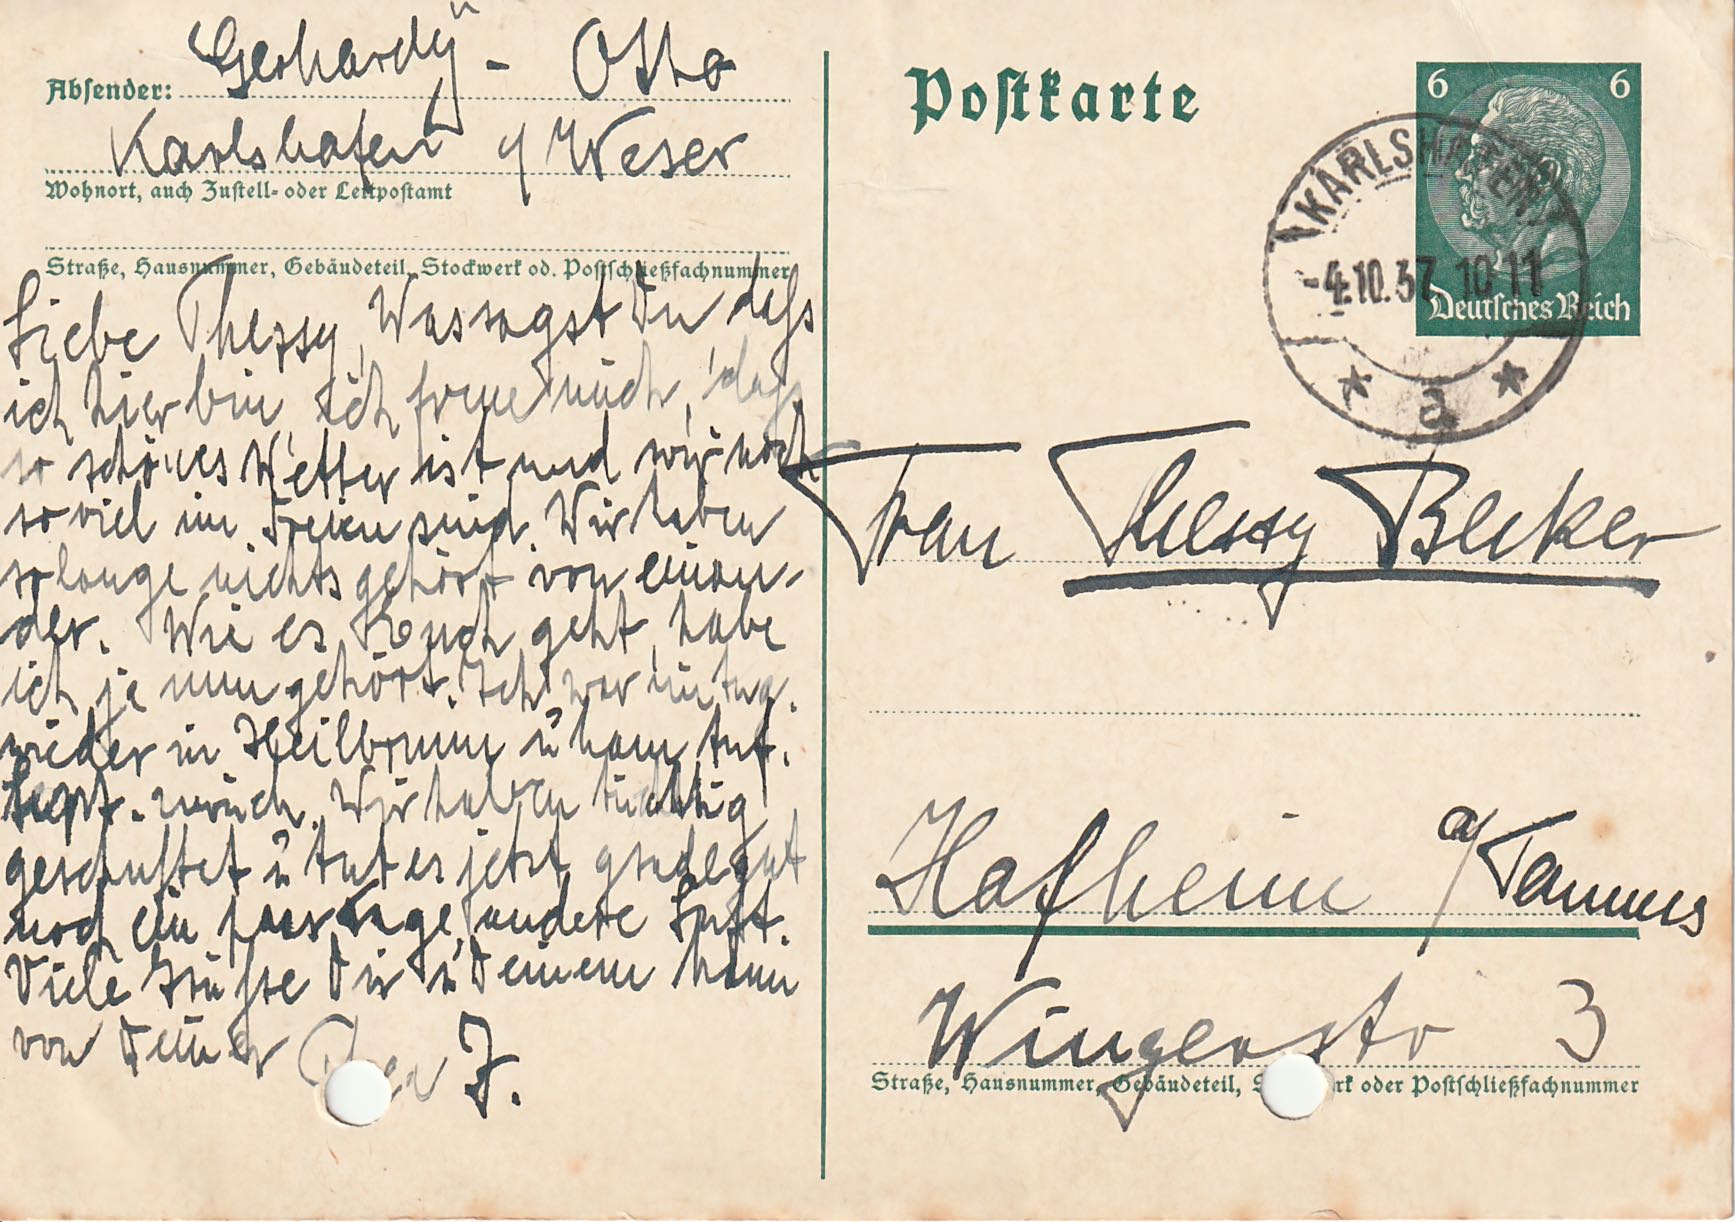 Absender: Gerhardÿ - Otto
Karlshafen a/ Weser
Wohnort, auch Zustell- oder Leitpostamt
Straße, Hausnummer, Gebäudeteil, Stockwerk od. Postschließfachnummer
Liebe Thessy, Was sagst Du dass
ich hier bin, ich freue mich, dass
so schönes Wetter ist und wir noch
so viel im Freien sind. Wir haben
so lange nichts gehört von einan-
der. Wie es Euch geht, habe
ich je nun gehört. Ich war im Aug.
wieder in Heilbrunn u kam Anf.
Sept. zurück. Wir haben tüchtig
geschuftet u tut es jetzt grade gut
noch ein paar Tage andere Luft.
Viele Grüsse Dir u Deinem Mann
von Deiner J.
Postkarte
6 6
Deutsches Reich
KARLSHAFEN
-4.10.37. 10-11
a
Frau Thessy Becker
Hofheim a/ Taunus
Wingertstr 3
Straße, Hausnummer, Gebäudeteil, oder Postschließfachnummer